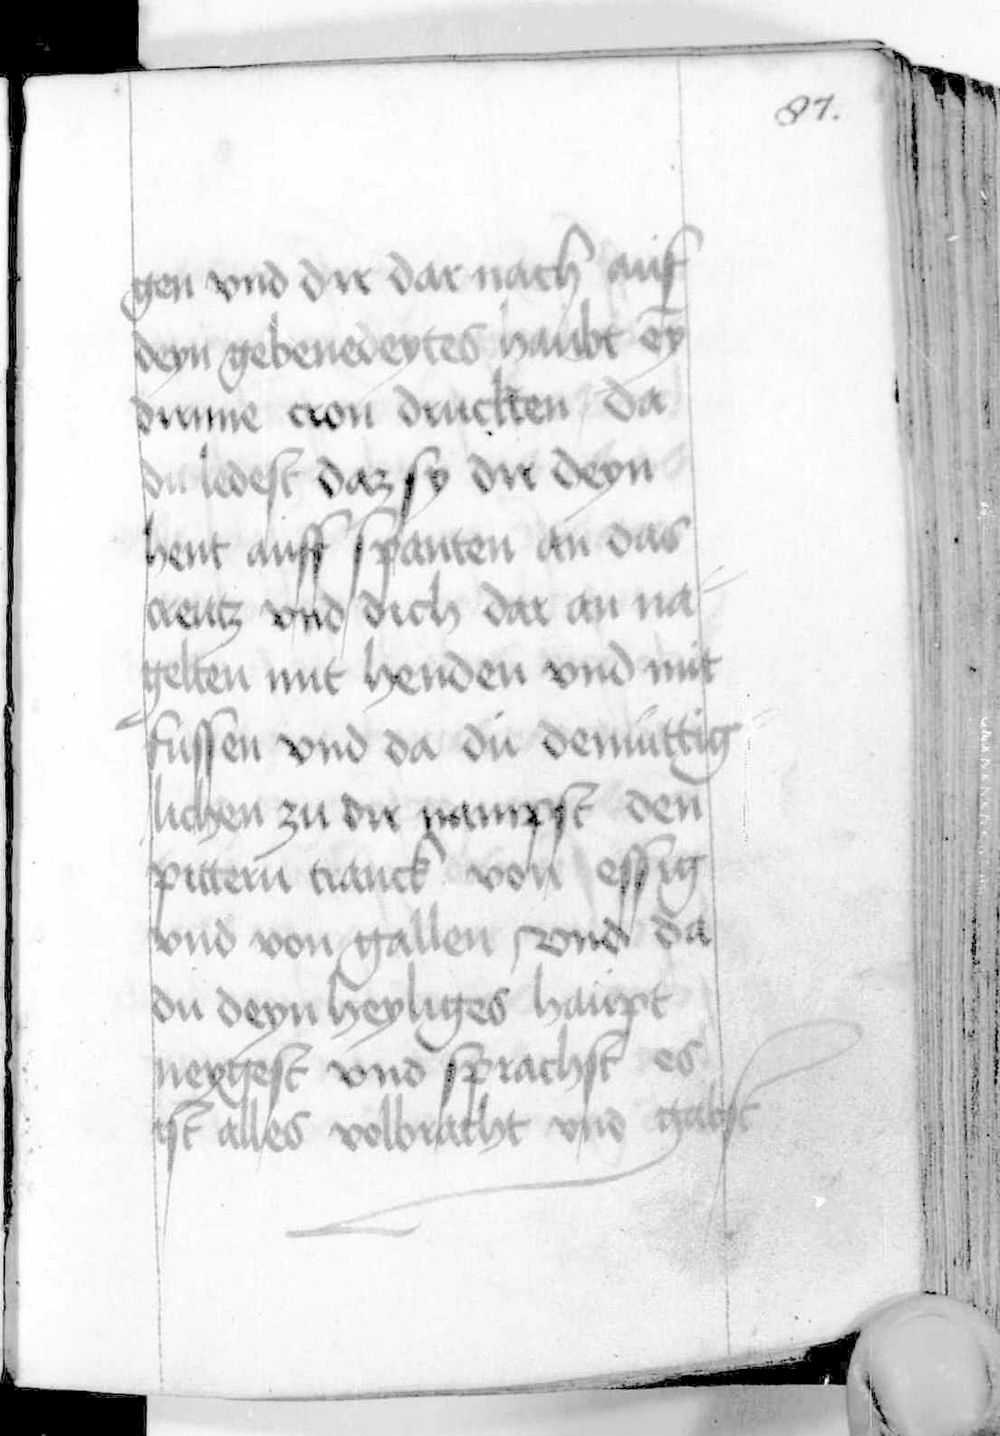 87.
gen vnd dir dar nach auf
deyn gebenedeytes haubt ey̅
dirnne cron druckten da
du ledest daz sy dir deyn
hent auff spanten an das
creutz vnd dich dar an na-
gelten mit henden vnd mit
fussen vnd da du demuttig
lichen zu dir nampst den
pittern tranck von essig
vnd von gallen vnd da
du deyn heyliges haupt
neygest vnd sprachst es
ist alles volbracht vnd gabst